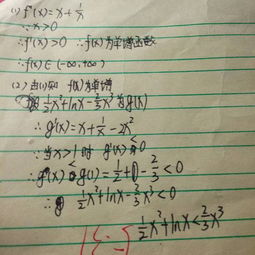 (1) f'(x)=x+1/x
∵x>0
∴f'(x)>0 ∴f(x)为单增函数
∴f(x)∈(-∞,+∞)
(2)由(1)知 f(x)为单增
1/2x²+lnx-2/3x³为g(x)
∴g'(x)=x+1/x-2x²
∵当x>1时 g'(x)<0
∴g(x)<g(1)=1/2+0-2/3<0
∴1/2x²+lnx-2/3x³<0
1/2x²+lnx<2/3x³